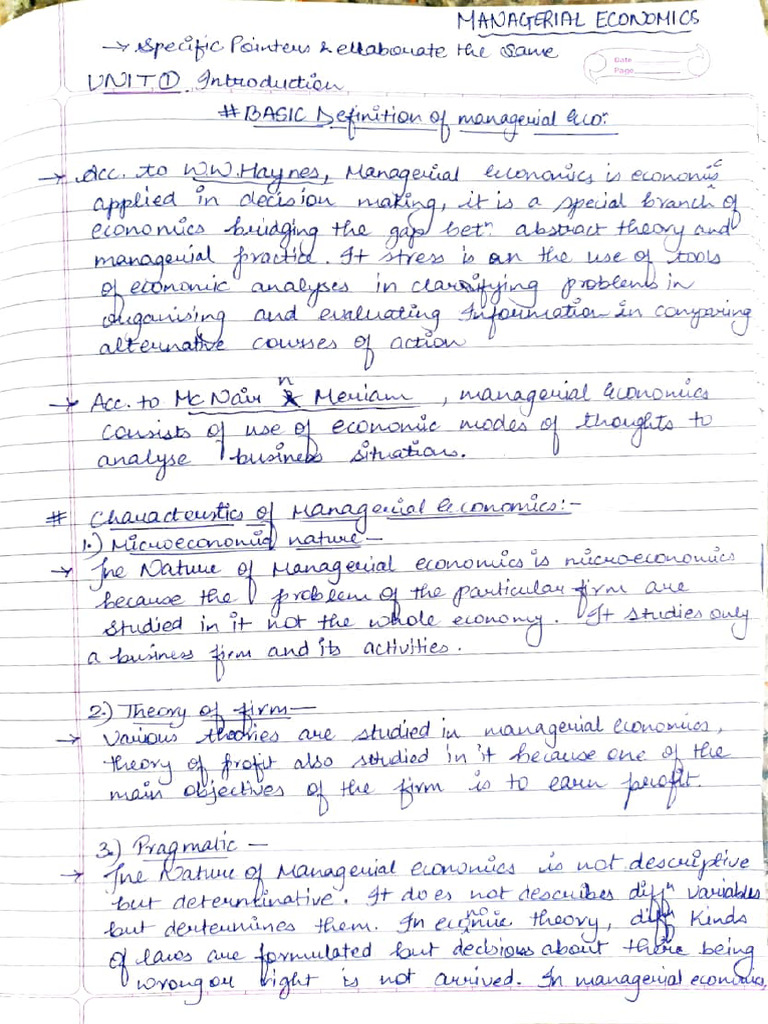 MANAGERIAL ECONOMICS
→ Specific Pointers & ellaborate the same
Date
Page
UNIT ① Introduction
# BASIC Definition of managerial eco:
→ Acc. to W.W. Haynes, Managerial economics is economic
applied in decision making, it is a special branch of
economics bridging the gap betn abstract theory and
managerial practice. It stress is on the use of tools
of economic analyses in clarifying problems in
organising and evaluating Information in comparing
alternative courses of action
→ Acc. to Mc Nair n Meriam, managerial economics
consists of use of economic modes of thoughts to
analyse business situation.
# Characteristics of Managerial economics:-
1.) Microeconomic nature -
→ The Nature of Managerial economics is microeconomics
because the problem of the particular firm are
studied in it not the whole economy. It studies only
a business firm and its activities.
2.) Theory of firm —
→ Various theories are studied in managerial economics,
theory of profit also studied in it because one of the
main objectives of the firm is to earn profit.
3.) Pragmatic —
→ The Nature of Managerial economics is not descriptive
but deterninative. It does not describes diffn variables
but dertermines them. In economic theory, diffn Kinds
of laws are formulated but decisions about there being
wrong or right is not arrived. In managerial economics,